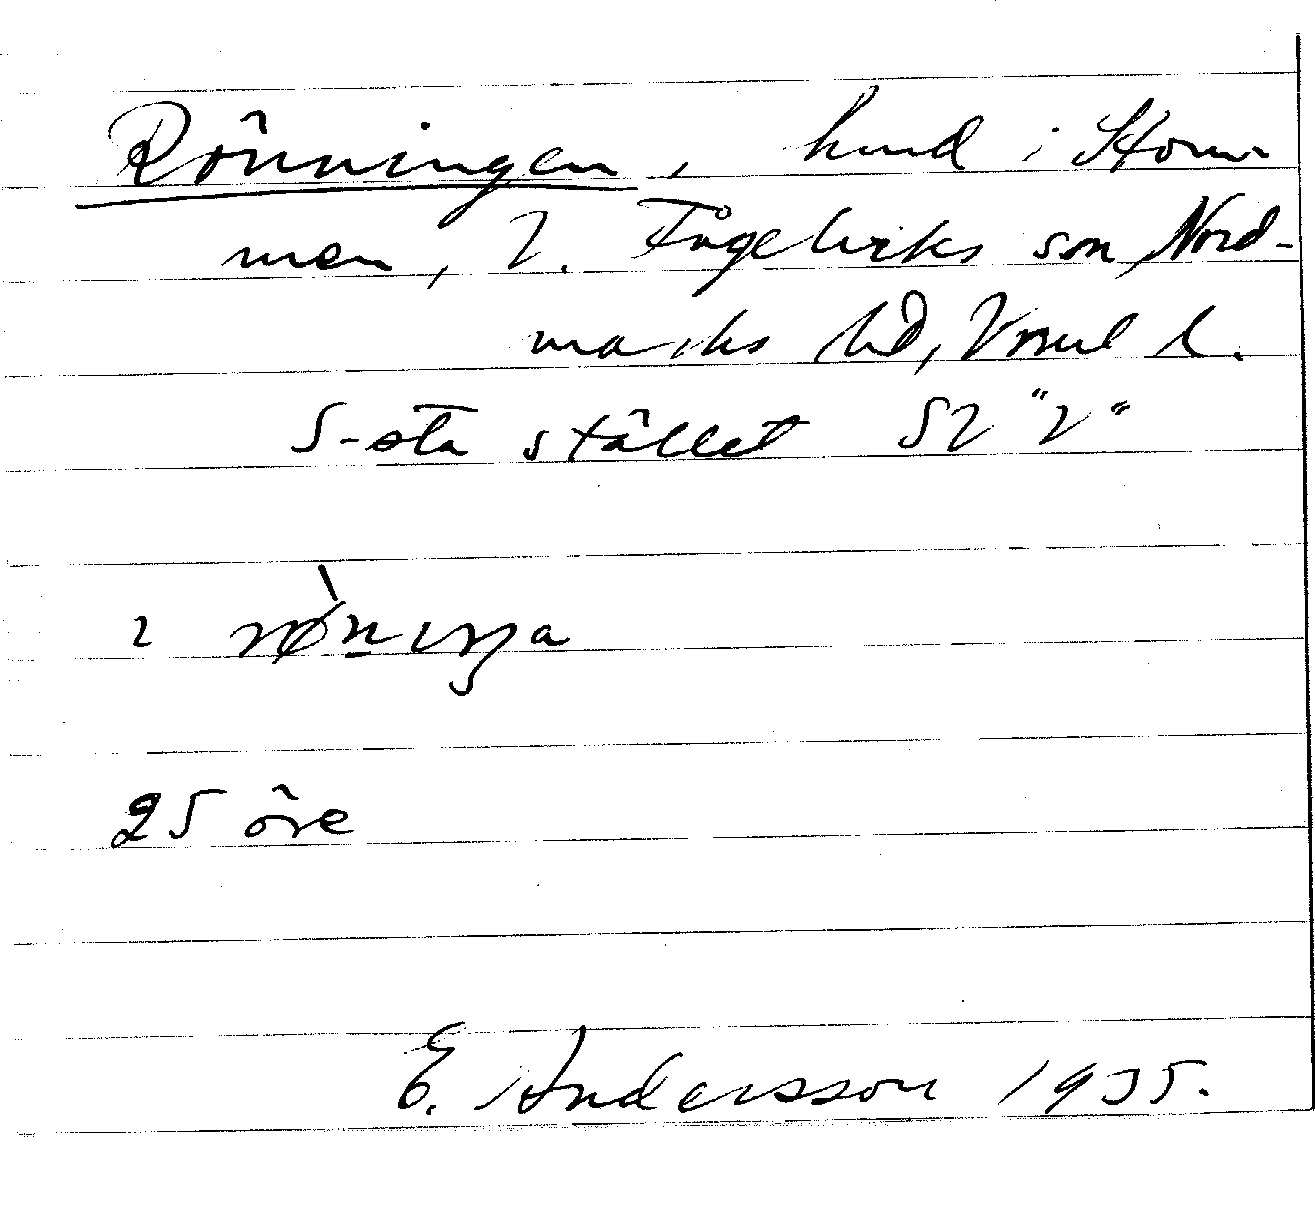 Rönningen, hmd i Hom-
men, V. Fågelviks sn, Nord-
marks hd, Vrml l.
5-sta stället SV "V"
2 røn̲ıŋa
25 öre
E. Andersson 1935.